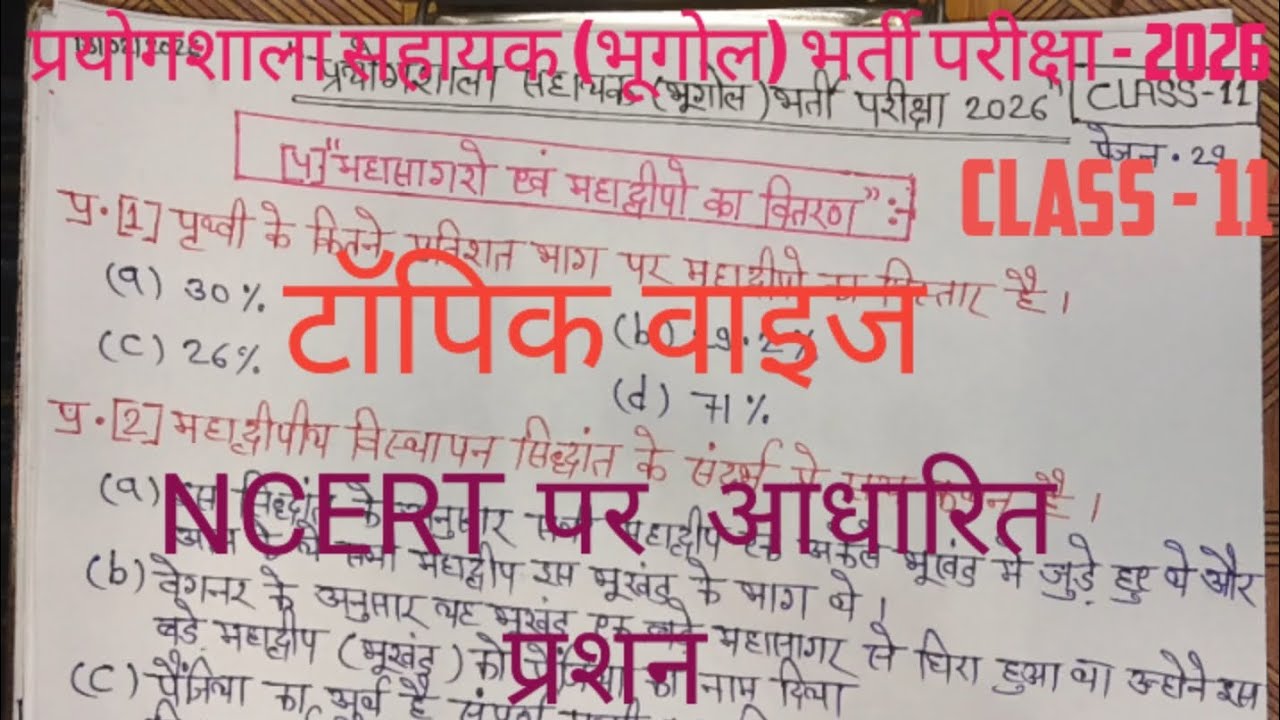 प्रयोगशाला सहायक (भूगोल) भर्ती परीक्षा - 2026
"प्रयोगशाला सहायक (भूगोल) भर्ती परीक्षा 2026"
CLASS-11
पेजन. 29
CLASS - 11
[4] "महासागरो एवं महाद्वीपो का वितरण" :-
प्र.[1] पृथ्वी के कितने प्रतिशत भाग पर महाद्वीपो का विस्तार है।
(a) 30%
(b) 29.2%
टॉपिक वाइज
(c) 26%
(d) 71%
प्र.[2] महाद्वीपीय विस्थापन सिद्धांत के संदर्भ मे कथन है।
(a) इस सिद्धांत के अनुसार सभी महाद्वीप एक अकेले भूखंड मे जुड़े हुए थे और
NCERT पर आधारित
सभी महाद्वीप इस भूखंड के भाग थे।
(b) वेगनर के अनुसार यह भूखंड एक बड़े महासागर से घिरा हुआ था उन्होने इस
बड़े महाद्वीप (भूखंड) को पैंजिया का नाम दिया
प्रशन
(c) पैंजिया का अर्थ है संपूर्ण